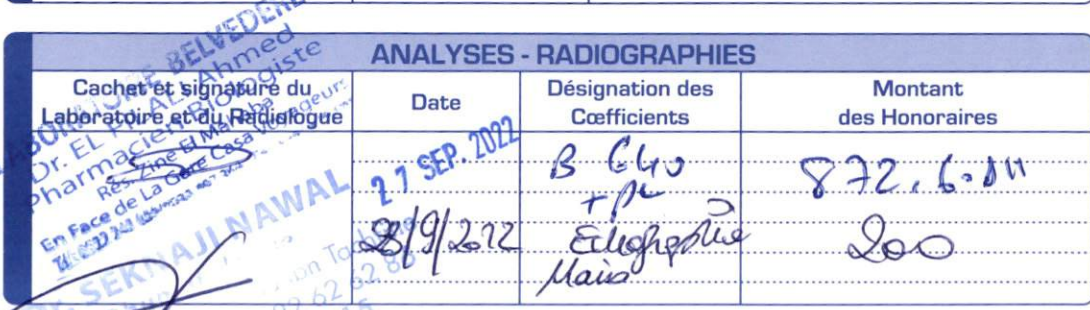 ANALYSES - RADIOGRAPHIES
Cachet et signature du
Laboratoire et du Radiologue
Date
Désignation des
Cœfficients
Montant
des Honoraires
LABORATOIRE BELVEDERE
Dr. EL Ahmed
Pharmacien Biologiste
Rés. Zine El
En Face de La Gare Casa Voyageurs
27 SEP. 2022
B 640
872.6
SEKNAJI NAWAL
28/9/2022
Echographie
200
62 62